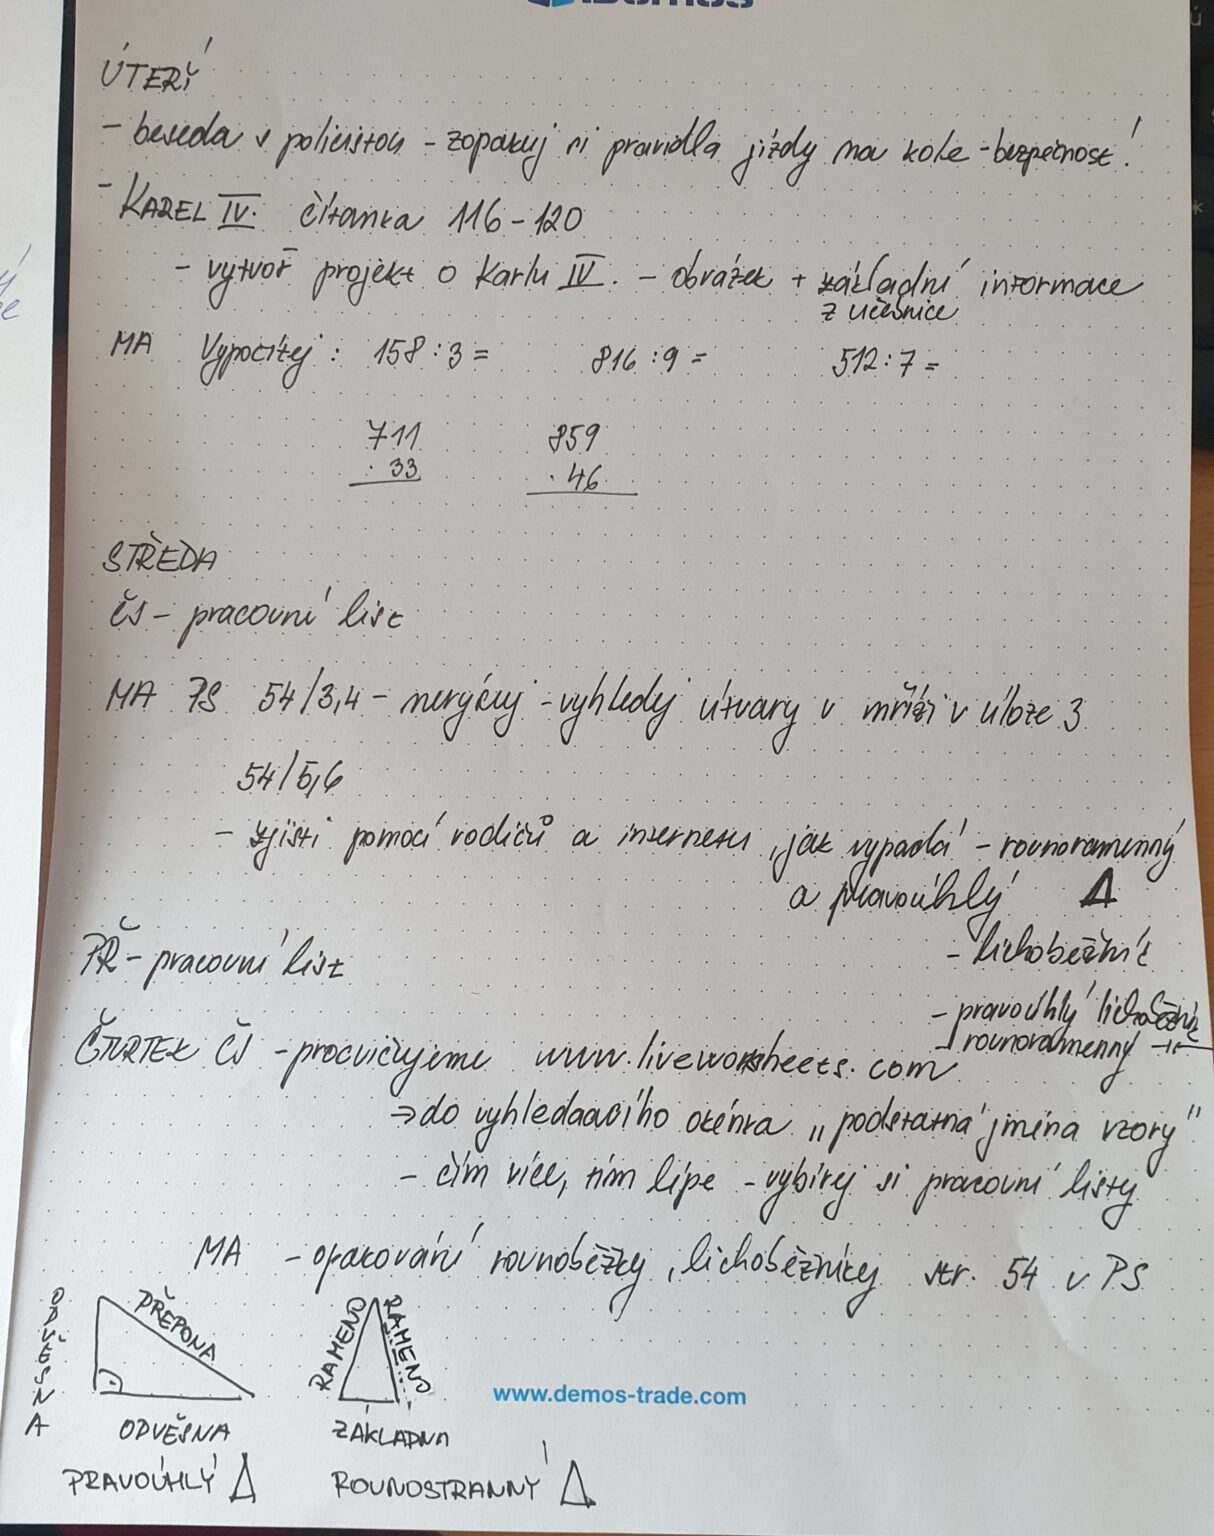 Demos
ÚTERÝ
- beseda s policistou - zopakuj si pravidla jízdy na kole - bezpečnost!
- KAREL IV. čítanka 116 - 120
- vytvoř projekt o Karlu IV. - obrázek + základní informace
z učebnice
MA Vypočítej : 158 : 3 = 816 : 9 = 512 : 7 =
711 859
. 33 . 46
STŘEDA
ČJ - pracovní list
MA PS 54/3,4 - nerýsuj - vyhledej útvary v mříži v úloze 3
54/5,6
- zjisti pomocí rodičů a internetu, jak vypadá - rovnoramenný
a pravoúhlý Δ
- lichoběžník
PŘ - pracovní list
- pravoúhlý lichoběžník
- rovnoramenny -||-
ČTVRTEK ČJ - procvičujeme www.liveworksheets.com
⇒ do vyhledaacího okénka „podstatná jména vzory"
- čím více, tím lépe - vybírej si pracovní listy
MA - opakování rovnoběžky, lichoběžníky str. 54 v PS
ODVĚSNA PŘEPONA RAMENO RAMENO
www.demos-trade.com
ODVĚSNA ZÁKLADNA
PRAVOÚHLÝ Δ ROVNOSTRANNÝ Δ